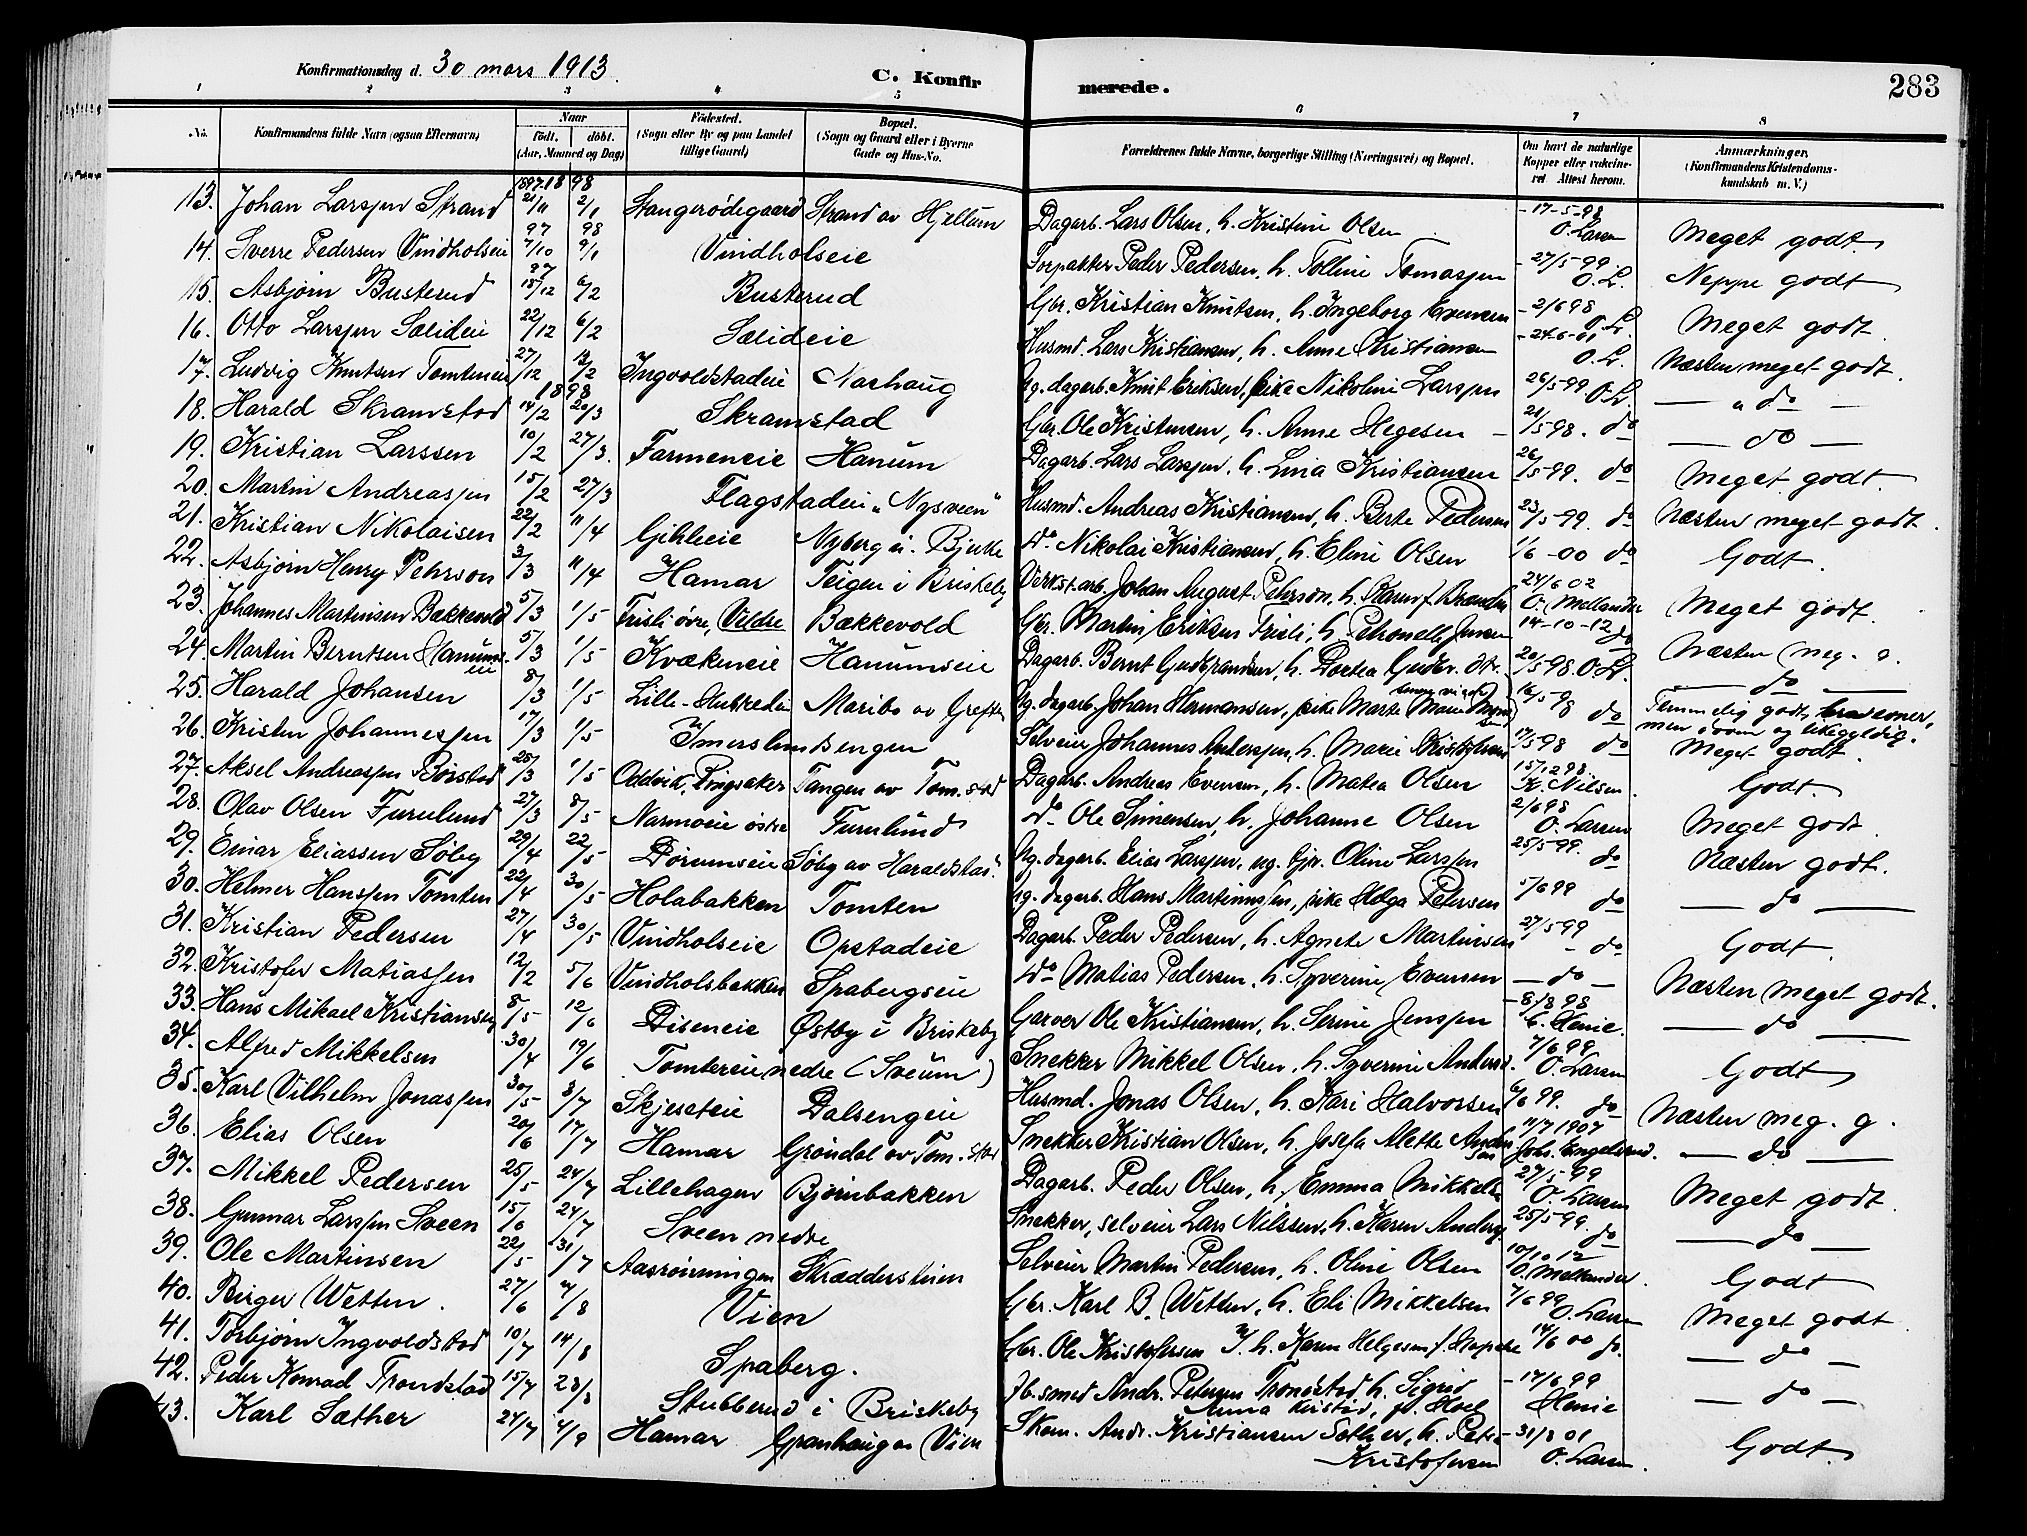 Konfirmationsdag d. 30 mars 1913.
C. Konfirmerede.
283
1 2 3 4 5 6 7 8
No. Konfirmandens fulde Navn (ogsaa Efternavn) Naar født. døbt. (Aar, Maaned og Dag) Fødested. (Sogn eller By og paa Landet tillige Gaard) Bopæl. (Sogn og Gaard eller i Byerne Gade og Hus-No. Forældrenes fulde Navne, borgerlige Stilling (Næringsvei) og Bopæl. Om havt de naturlige Kopper eller vakcineret Attest herom. Anmærkninger. (Konfirmandens Kristendomskundskab m. V.)
13. Johan Larssen Strand 1897 25/11 1898 2/1 Stangerødegaard Strand av Hjellum Dagarb. Lars Olsen, h. Kristine Olsen -17-5-98 O. Larsen Meget godt
14. Sverre Pedersen Vindholseie 97 7/10 98 9/1 Vindholseie Forpakter Peder Pedersen, h. Tolline Tomassen -27/5-99 O.L. Neppe godt
15. Asbjørn Busterud 97 15/12 6/2 Busterud Gbr. Kristian Knutsen, h. Ingeborg Evensen -2/6 98 O.L. Meget godt.
16. Otto Larssen Sælideie 22/12 6/2 Sælideie Husmd. Lars Kristiansen, h. Anne Kristiansen -24-6-01 O.L. Næsten meget godt.
17. Ludvig Knutsen Tomteneie 27/12 13/2 Ingvoldstadeie Nashaug Ug. dagarb. Knut Eriksen, pike Nikoline Larssen 26/5-99 O.L. — " do —
18. Harald Skramstad 1898 14/2 20/3 Skramstad Gbr. Ole Kristensen, h. Anne Hegesen - 21/5 98. do — do —
19. Kristian Larssen 10/2 27/3. Farmeneie Hanum Dagarb. Lars Larssen, h. Lina Kristiansen 26/5-99. do Meget godt.
20. Martin Andreassen 15/2 27/3 Flagstadeie "Nysveen" Husmd. Andreas Kristiansen, h. Berte Pedersen 23/5-99. do Næsten meget godt.
21. Kristian Nikolaisen 22/2 11/4 Gihleeie Nyberg u. Bjerke Do Nikolai Kristiansen, h. Eline Olsen 1/6-00 do Godt.
22. Asbjørn Henry Pehrson 3/3 11/4 Hamar Teigen i Briskeby Verkst.arb. Johan August Pehrson, h. Karen f. 24/6 02 O. Mellander Meget godt.
23. Johannes Martinsen Bækkevold 5/3 1/5 Frisli øvre, Veldre Bækkevold Gbr. Martin Eriksen Frisli, h. Petronelle Jensen 14-10-12 do Næsten meg. g.
24. Martin Berntsen Hanumseie 5/3 1/5 Kvækeneie Hanumseie Dagarb. Bernt Gudbrandsen, h. Dortea Gudbr. dtr. 20/5-98. O.L. — do —
25. Harald Johansen 8/3 1/5 Lille- Maribo av Greften Ug. dagarb. Johan Hermansen, pike Marte Marie 16/5-98 do Temmelig godt, men doven og likegyldig.
26. Kristen Johannessen 17/3 1/5 Imerslundsengen Selveier Johannes Anderssen, h. Marie Kristofersen 17/5 98 do Meget godt.
27. Aksel Andreassen Børstad 25/3 1/5 Oddvik, Ringsaker Tangen av Tom. stad Dagarb. Andreas Evensen, h. Matea Olsen 15/12 98 K. Nilsen. Godt.
28. Olav Olsen Furulund 27/3 8/5 Narmoeie østre Furulund Do Ole Simensen, h. Johanne Olsen 2/6 98 O. Larsen Meget godt.
29. Einar Eliassen Søby 29/4 22/5 Dørumseie Søby av Haraldstad. Ug. dagarb. Elias Larssen, ug. Gjv. Oline Larssen 25/5-99. do Næsten godt.
30. Helmer Hanssen Tomten 22/4 30/5 Holabakken Tomten ug. dagarb. Hans Martinussen, pike Helga Petersen 5/6 99 do — do —
31. Kristian Pedersen 27/4 30/5 Vindholseie Opstadeie Dagarb. Peder Pedersen, h. Agnete Martinsen 27/5 99 - do Godt.
32. Kristofer Matiassen 12/2 5/6 Vindholsbakken Spabergseie Do Matias Pedersen, h. Syverine Evensen — do — Næsten meget godt.
33. Hans Mikael Kristiansen 8/5 12/6 Diseneie Østby i Briskeby Garver Ole Kristiansen, h. Serine Jenssen -8/8 98 C. Henie. — do —
34. Alfred Mikkelsen 30/4 19/6 Tomtereie nedre (Sveum) Snekker Mikkel Olsen, h. Syverine Anderss. 7/6 99 O. Larsen Godt
35. Karl Vilhelm Jonassen 30/5 3/7 Skjeseteie Dalsengeie Husmd. Jonas Olsen, h. Kari Halvorssen 6/6 99. do Næsten meg. g.
36. Elias Olsen 20/6 17/7 Hamar Grøndal av Tom. stad Snekker Kristian Olsen, h. Josefa Alette Andersen 11/7 1907 Johs. Engelsrud. — do —
37. Mikkel Pedersen 25/5 24/7 Lillehagen Bjørnbakken Dagarb. Peder Olsen, h. Emma Mikkelsen 27/5-99 O. Larsen Meget godt.
38. Gunnar Larssen Sveen 15/6 24/7 Sveen nedre Snekker, selveier Lars Nilssen, h. Karen Anders. 25/5-99. do — do —
39. Ole Martinsen 22/5 31/7 Aasrøinningen Skrædderstuen Selveier Martin Pedersen, h. Oline Olsen 10/10 12 O. Mellander. Godt
40. Birger Wetten. 27/6 7/8 Vien Gbr. Karl B. Wetten, h. Eli Mikkelsen 7/6 99 O. Larsen Meget godt
41. Torbjørn Ingvoldstad 10/7 14/8 Spaberg. Gbr. Ole Kristofersen I. h. Karen Helgesen f. 14/6 00 do. — do —
42. Peder Konrad Trondstad 15/7 28/8 Stubberud i Briskeby Fb. smed Andr. Petersen Trondstad h. Sigrid Anna Kristid, f. Hoel -17/6 99 Henie — do —
43. Karl Sæther 24/7 4/9 Hamar Granhaug av Vien Skom. Andr. Kristiansen Sæther, h. Petra Kristofersen -31/8 01 O. Larsen. Godt